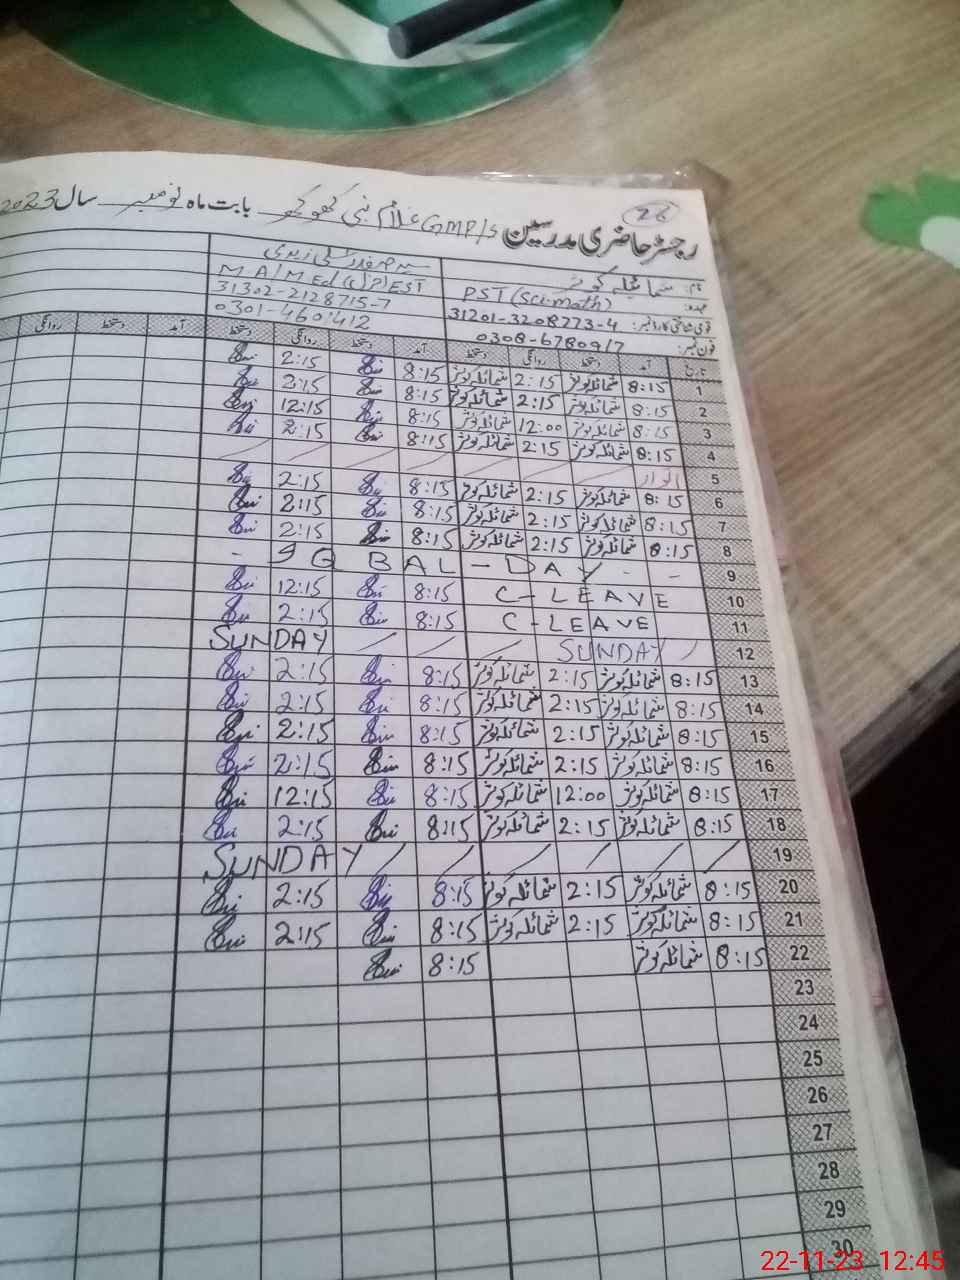 26
رجسٹر حاضری مدرسین GMP/S غلام نبی کھوکھر بابت ماہ نومبر سال 2023
نام: شمائلہ کوثر
عہدہ: PST (sci-math) M A / M Ed EST
قومی شناختی کارڈ نمبر: 31201-3208773-4 31302-2128715-7
فون نمبر: 0308-6780917 0301-4601412
تاریخ آمد دستخط روانگی دستخط آمد دستخط روانگی دستخط آمد دستخط روانگی
1 8:15 شمائلہ کوثر 2:15 شمائلہ کوثر 8:15 2:15
2 8:15 شمائلہ کوثر 2:15 شمائلہ کوثر 8:15 2:15
3 8:15 شمائلہ کوثر 12:00 شمائلہ کوثر 8:15 12:15
4 8:15 شمائلہ کوثر 2:15 شمائلہ کوثر 8:15 2:15
5 اتوار
6 8:15 شمائلہ کوثر 2:15 شمائلہ کوثر 8:15 2:15
7 8:15 شمائلہ کوثر 2:15 شمائلہ کوثر 8:15 2:15
8 8:15 شمائلہ کوثر 2:15 شمائلہ کوثر 8:15 2:15
9 - IQBAL - DAY - -
10 C - LEAVE 8:15 12:15
11 C - LEAVE 8:15 2:15
12 SUNDAY SUNDAY
13 8:15 شمائلہ کوثر 2:15 شمائلہ کوثر 8:15 2:15
14 8:15 شمائلہ کوثر 2:15 شمائلہ کوثر 8:15 2:15
15 8:15 شمائلہ کوثر 2:15 شمائلہ کوثر 8:15 2:15
16 8:15 شمائلہ کوثر 2:15 شمائلہ کوثر 8:15 2:15
17 8:15 شمائلہ کوثر 12:00 شمائلہ کوثر 8:15 12:15
18 8:15 شمائلہ کوثر 2:15 شمائلہ کوثر 8:15 2:15
19 SUNDAY
20 8:15 شمائلہ کوثر 2:15 شمائلہ کوثر 8:15 2:15
21 8:15 شمائلہ کوثر 2:15 شمائلہ کوثر 8:15 2:15
22 8:15 شمائلہ کوثر 8:15
23
24
25
26
27
28
29
30
22-11-23 12:45